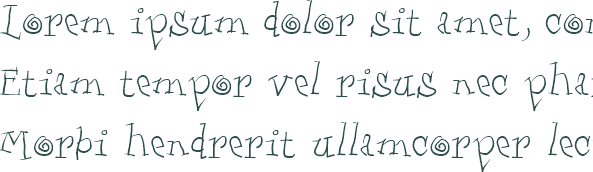 Lorem ipsum dolor sit amet, con
Etiam tempor vel risus nec phar
Morbi hendrerit ullamcorper lec